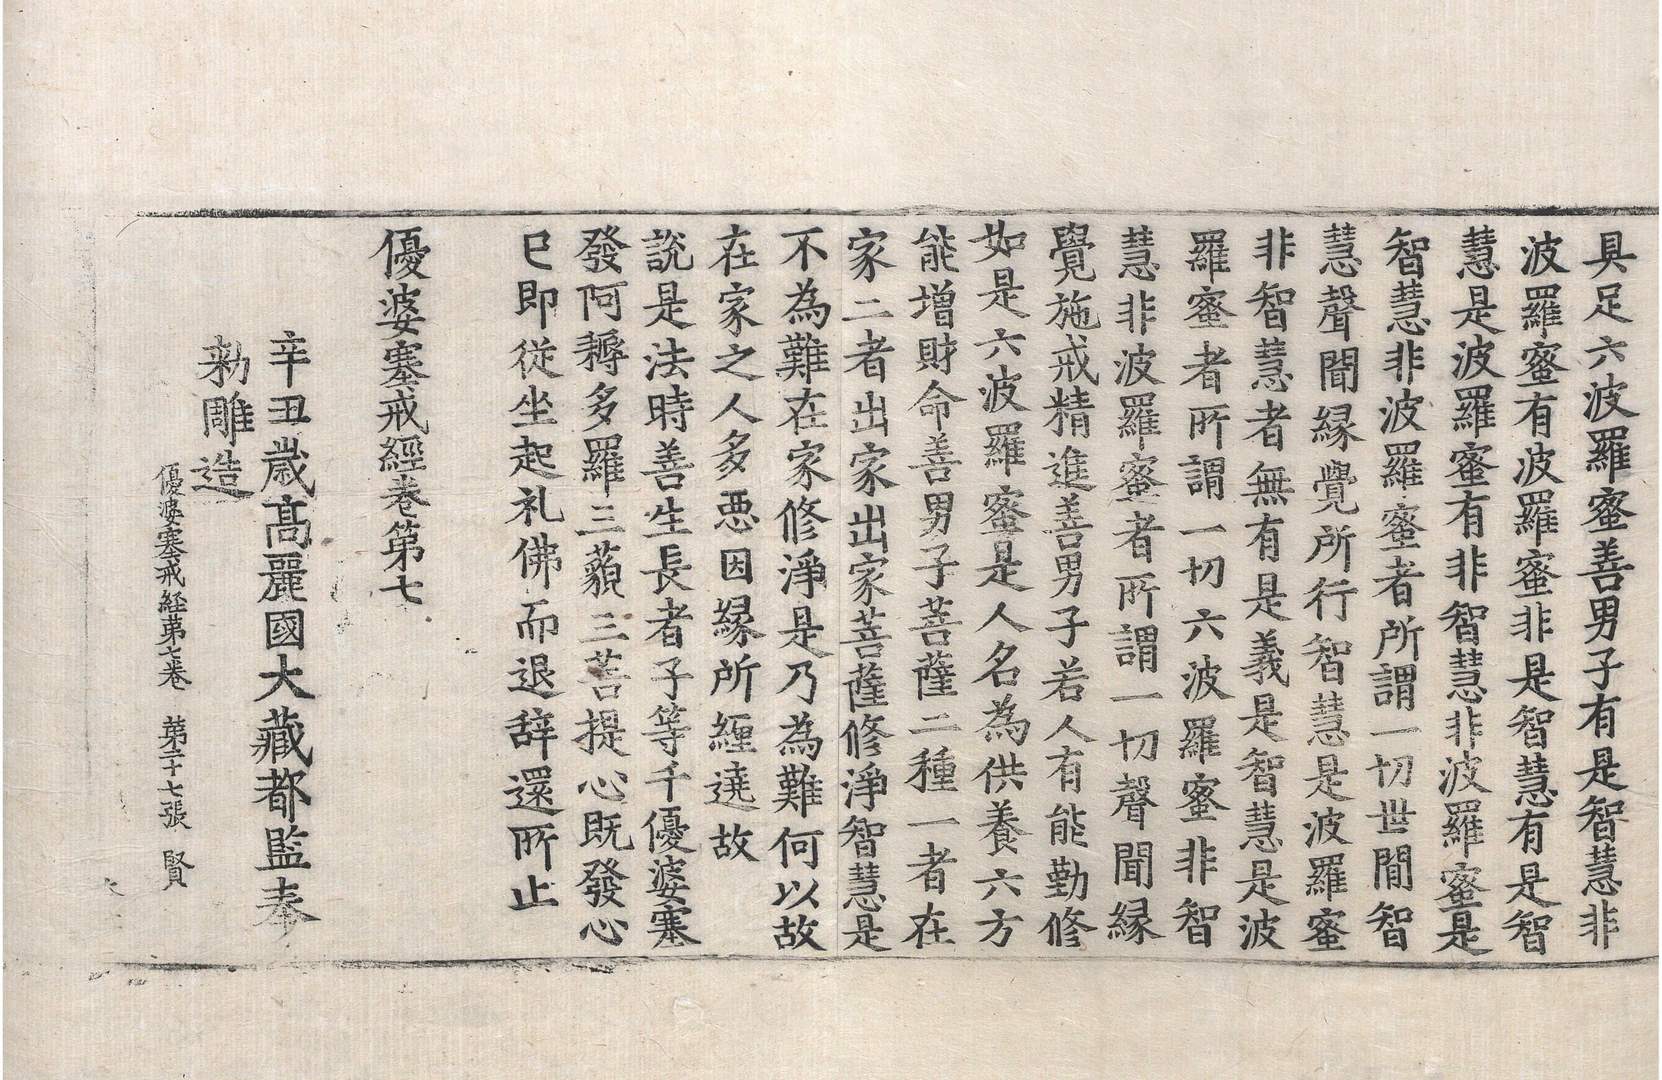 具足六波羅蜜善男子有是智慧非
波羅蜜有波羅蜜非是智慧有是智
慧是波羅蜜有非智慧非波羅蜜是
智慧非波羅蜜者所謂一切世閒智
慧聲聞緣覺所行智慧是波羅蜜
非智慧者無有是義是智慧是波
羅蜜者所謂一切六波羅蜜非智
慧非波羅蜜者所謂一切聲聞緣
覺施戒精進善男子若人有能勤修
如是六波羅蜜是人名為供養六方
能增財命善男子菩薩二種一者在
家二者出家出家菩薩修淨智慧是
不為難在家修淨是乃為難何以故
在家之人多惡因緣所纏遶故
說是法時善生長者子等千優婆塞
發阿耨多羅三藐三菩提心既發心
已即從坐起礼佛而退辞還所止
優婆塞戒經卷第七
辛丑歲髙麗國大藏都監奉
勑雕造
優婆塞戒経苐七卷 苐二十七張 賢